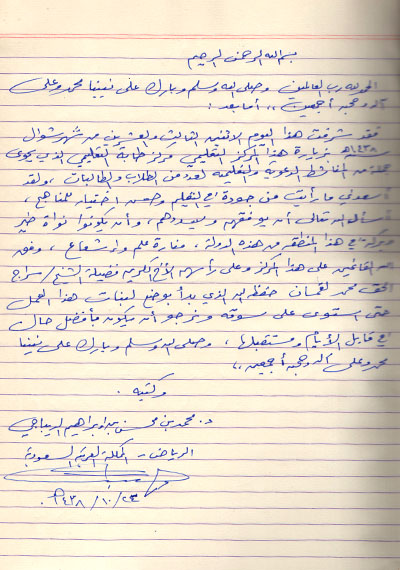 بسم الله الرحمن الرحيم
الحمد لله رب العالمين وصلى الله وسلم وبارك على نبينا محمد وعلى
آله وصحبه أجمعين ،، أما بعد :
فقد شرفت هذا اليوم الاثنين الثالث والعشرين من شهر شوال
١٤٣٨هـ بزيارة هذا المركز التعليمي مركز طابة التعليمي الذي يحوي
جملة من المناشط الدعوية والتعليمية لعدد من الطلاب والطالبات ، ولقد
أسعدني ما رأيت من جودة في التعليم وحسن اختيار للمناهج ،
فأسأل الله تعالى أن يوفقهم ويسددهم ، وأن يكونوا نواة خير
وبركة في هذا المنطقة من هذه الدولة ، منارة علم وإشعاع ، وفق
الله القائمين على هذا المركز وعلى رأسهم الأخ الكريم فضيلة الشيخ / سراج
الحق محمد لقمان حفظه الله الذي بدأ بوضع لبنات هذا العمل
حتى استوى على سوقه ونرجو أن يكون بأفضل حال
في قابل الأيام ومستقبلها ، وصلى الله وسلم وبارك على نبينا
محمد وعلى آله وصحبه أجمعين ،،
وكتبه .
د. محمد بن محسن بن إبراهيم
الرياض - المملكة العربية السعودية
٢٣ / ١٠ / ١٤٣٨هـ